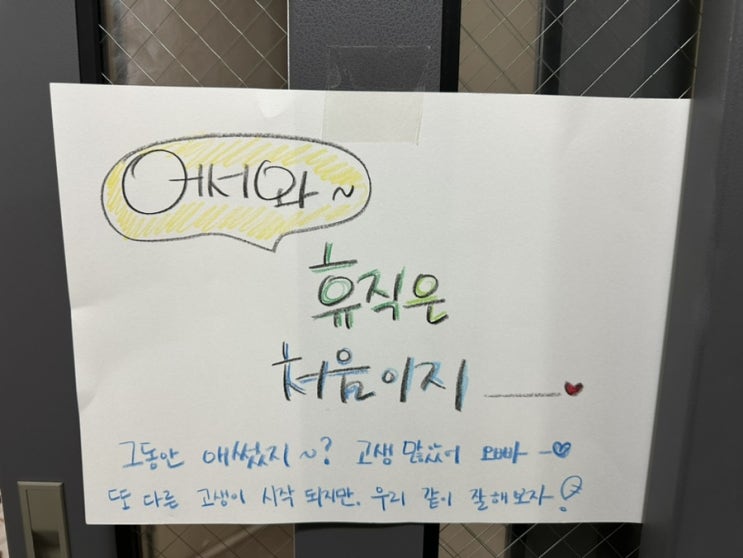 어서와~
휴직은
처음이지
그동안 애썼지~? 고생 많았어 오빠
또 다른 고생이 시작 되지만, 우리 같이 잘해보자!